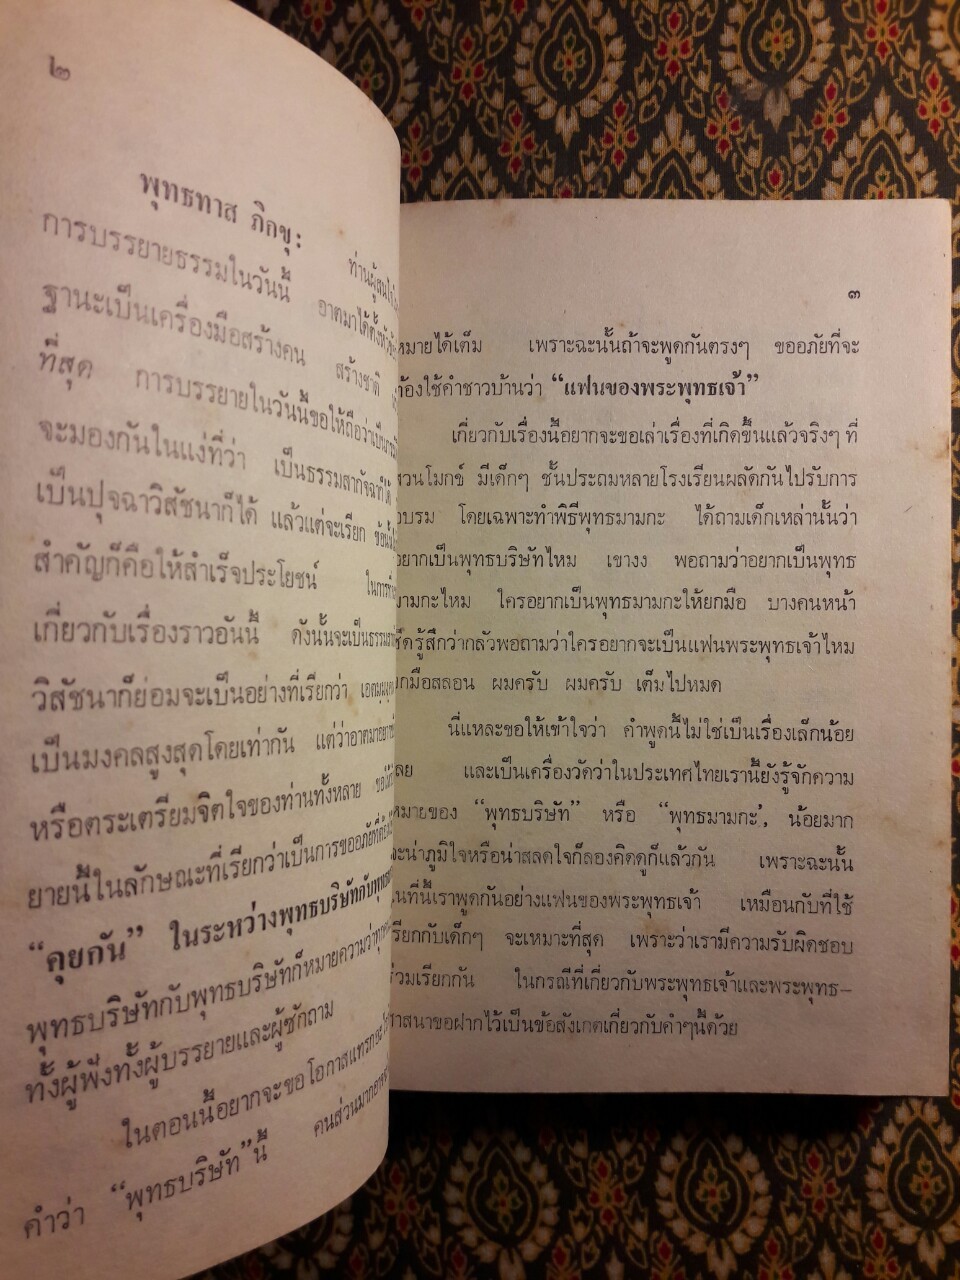 ๒
พุทธทาส ภิกขุ :
ท่านผู้สนใจ
การบรรยายธรรมในวันนี้ อาตมาได้ตั้งหัวข้อ
ฐานะเป็นเครื่องมือสร้างคน สร้างชาติ
ที่สุด การบรรยายในวันนี้ขอให้ถือว่าเป็นการ
จะมองกันในแง่ที่ว่า เป็นธรรมสากัจฉาก็ได้
เป็นปุจฉาวิสัชนาก็ได้ แล้วแต่จะเรียก ข้อนั้น
สำคัญก็คือให้สำเร็จประโยชน์ ในการ
เกี่ยวกับเรื่องราวอันนี้ ดังนั้นจะเป็นธรรม
วิสัชนาก็ย่อมจะเป็นอย่างที่เรียกว่า
เป็นมงคลสูงสุดโดยเท่ากัน แต่ว่าอาตมาอยาก
หรือตระเตรียมจิตใจของท่านทั้งหลาย
ยายนี้ในลักษณะที่เรียกว่าเป็นการขออภัยที่ต้อง
“คุยกัน” ในระหว่างพุทธบริษัทกับพุทธ
พุทธบริษัทกับพุทธบริษัทก็หมายความว่าทุก
ทั้งผู้ฟังทั้งผู้บรรยายและผู้ซักถาม
ในตอนนี้อยากจะขอโอกาสแทรก
คำว่า “พุทธบริษัท”นี้ คนส่วนมากอาจ
๓
หมายได้เต็ม เพราะฉะนั้นถ้าจะพูดกันตรงๆ ขออภัยที่จะ
ต้องใช้คำชาวบ้านว่า “แฟนของพระพุทธเจ้า”
เกี่ยวกับเรื่องนี้อยากจะขอเล่าเรื่องที่เกิดขึ้นแล้วจริงๆ ที่
สวนโมกข์ มีเด็กๆ ชั้นประถมหลายโรงเรียนผลัดกันไปรับการ
อบรม โดยเฉพาะทำพิธีพุทธมามกะ ได้ถามเด็กเหล่านั้นว่า
อยากเป็นพุทธบริษัทไหม เขางง พอถามว่าอยากเป็นพุทธ
มามกะไหม ใครอยากเป็นพุทธมามกะให้ยกมือ บางคนหน้า
ซีดรู้สึกว่ากลัวพอถามว่าใครอยากจะเป็นแฟนพระพุทธเจ้าไหม
ยกมือสลอน ผมครับ ผมครับ เต็มไปหมด
นี่แหละขอให้เข้าใจว่า คำพูดนี้ไม่ใช่เป็นเรื่องเล็กน้อย
เลย และเป็นเครื่องวัดว่าในประเทศไทยเรานี้ยังรู้จักความ
หมายของ “พุทธบริษัท” หรือ “พุทธมามกะ’, น้อยมาก
จะน่าภูมิใจหรือน่าสลดใจก็ลองคิดดูก็แล้วกัน เพราะฉะนั้น
ในที่นี้เราพูดกันอย่างแฟนของพระพุทธเจ้า เหมือนกับที่ใช้
เรียกกับเด็กๆ จะเหมาะที่สุด เพราะว่าเรามีความรับผิดชอบ
ร่วมเรียกกัน ในกรณีที่เกี่ยวกับพระพุทธเจ้าและพระพุทธ–
ศาสนาขอฝากไว้เป็นข้อสังเกตเกี่ยวกับคำๆนี้ด้วย